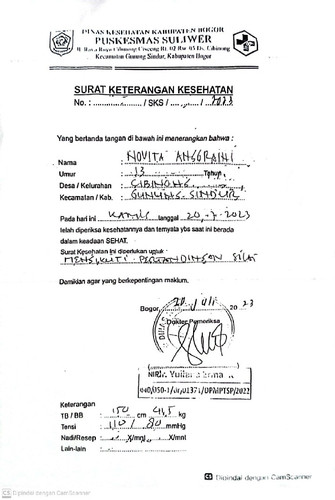 DINAS KESEHATAN KABUPATEN BOGOR
PUSKESMAS SULIWER
Jl. Raya
Kecamatan Gunung Sindur, Kabupaten Bogor
SURAT KETERANGAN KESEHATAN
No. : ............ / SKS / ........ / ..2023
Yang bertanda tangan di bawah ini menerangkan bahwa :
Nama : NOVITA ANGGRAINI
Umur : 13 Tahun
Desa / Kelurahan : CIBINONG
Kecamatan / Kab. : GUNUNG SINDUR
Pada hari ini KAMIS tanggal 20-7-2023
telah diperiksa kesehatannya dan ternyata ybs saat ini berada
dalam keadaan SEHAT.
Surat Kesehatan ini diperlukan untuk
MENGIKUTI PERTANDINGAN SILAT
Demikian agar yang berkepentingan maklum.
Bogor, 20 Juli 20 23
Dokter Pemeriksa
Keterangan
TB / BB : 150 cm 41,5 kg
Tensi : 110 / 80 mmHg
Nadi/Resep : ........ X/mnt / ........ X/mnt
Lain-lain :
CS Dipindai dengan CamScanner
CS Dipindai dengan CamScanner